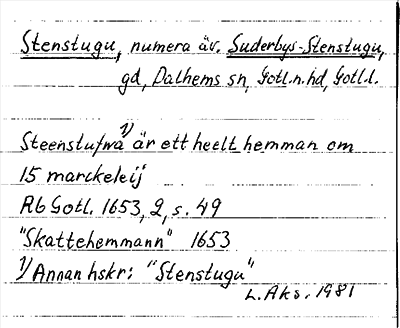 Stenstugu, numera äv. Suderbys-Stenstugu,
gd, Dalhems sn, Gotl.n.hd, Gotl.l.
Steenstufwa 1) är ett heelt hemman om
15 marckeleij
Rb Gotl. 1653, 2, s. 49
"Skattehemmann" 1653
1) Annan hskr: "Stenstugu"
L. Aks. 1981